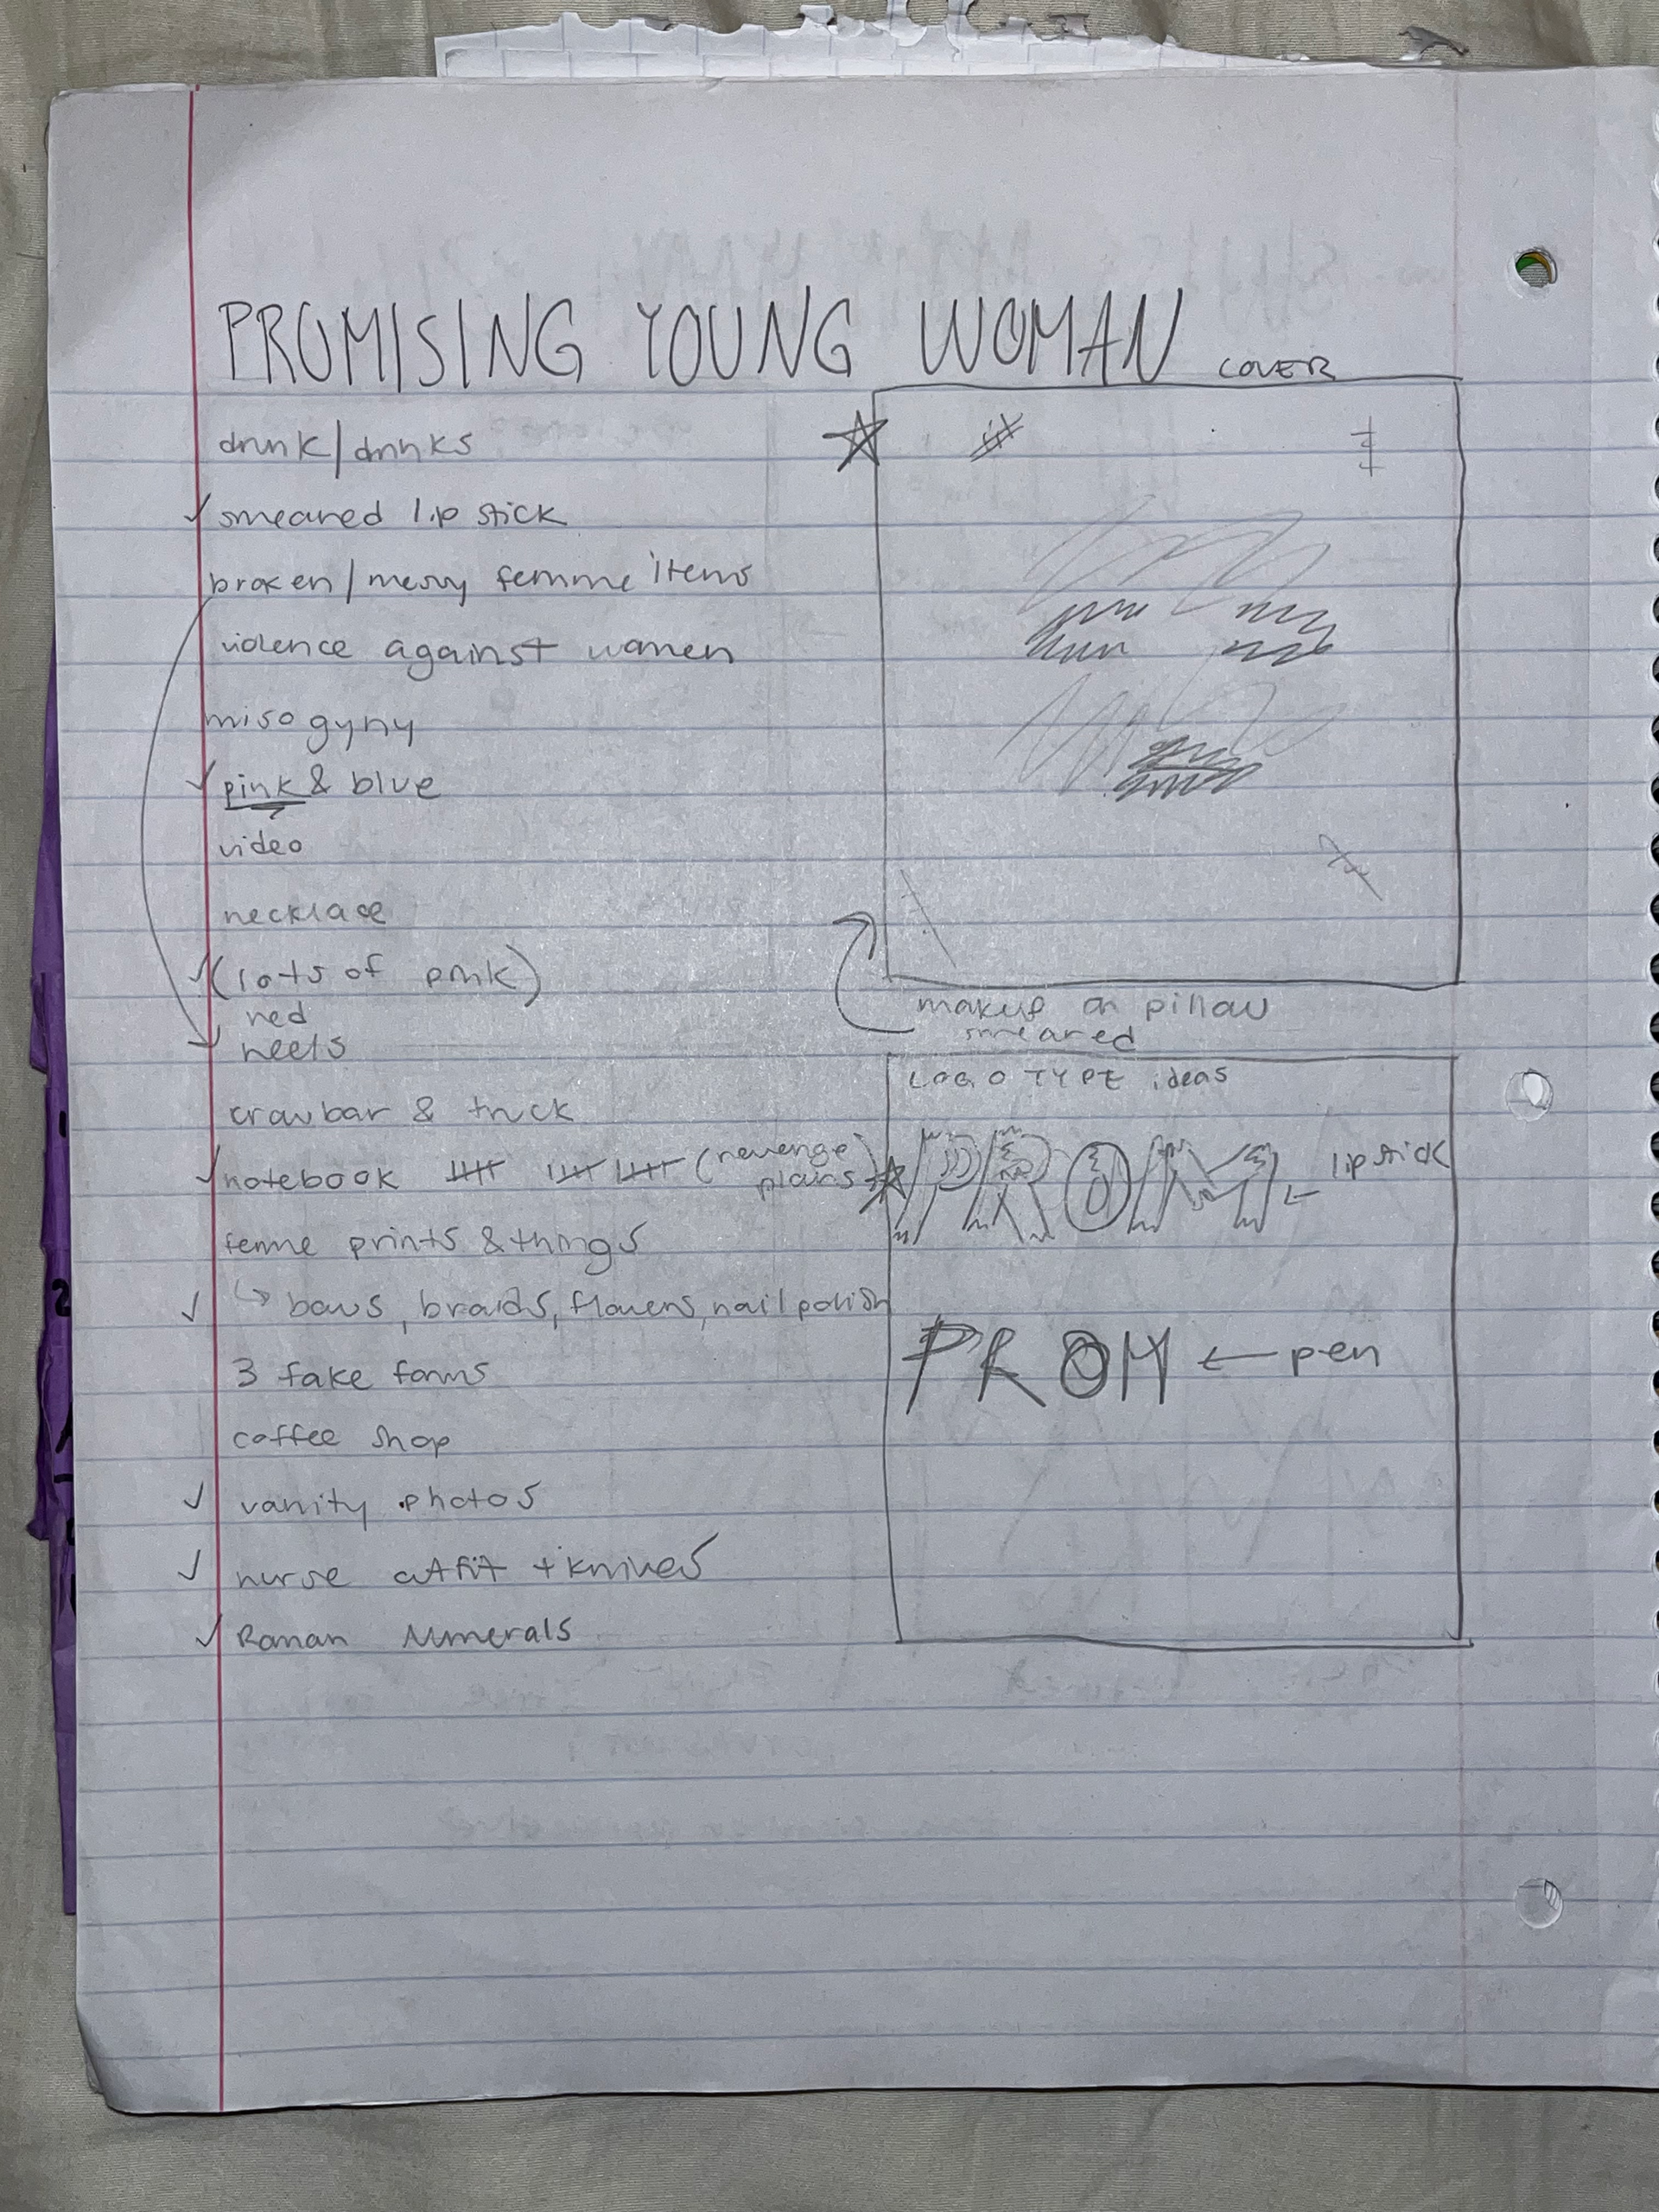 PROMISING YOUNG WOMAN
COVER
drunk/drinks
smeared lipstick
broken/messy femme items
violence against women
misogyny
pink & blue
video
necklace
(lots of pink)
red
heels
crowbar & truck
notebook (revenge
plans)
femme prints & things
bows, braids, flowers, nail polish
3 fake forms
coffee shop
vanity photos
nurse outfit + knives
Roman Numerals
makeup on pillow
smeared
LOGO TYPE ideas
PROM
lipstick
PROM ← pen
2